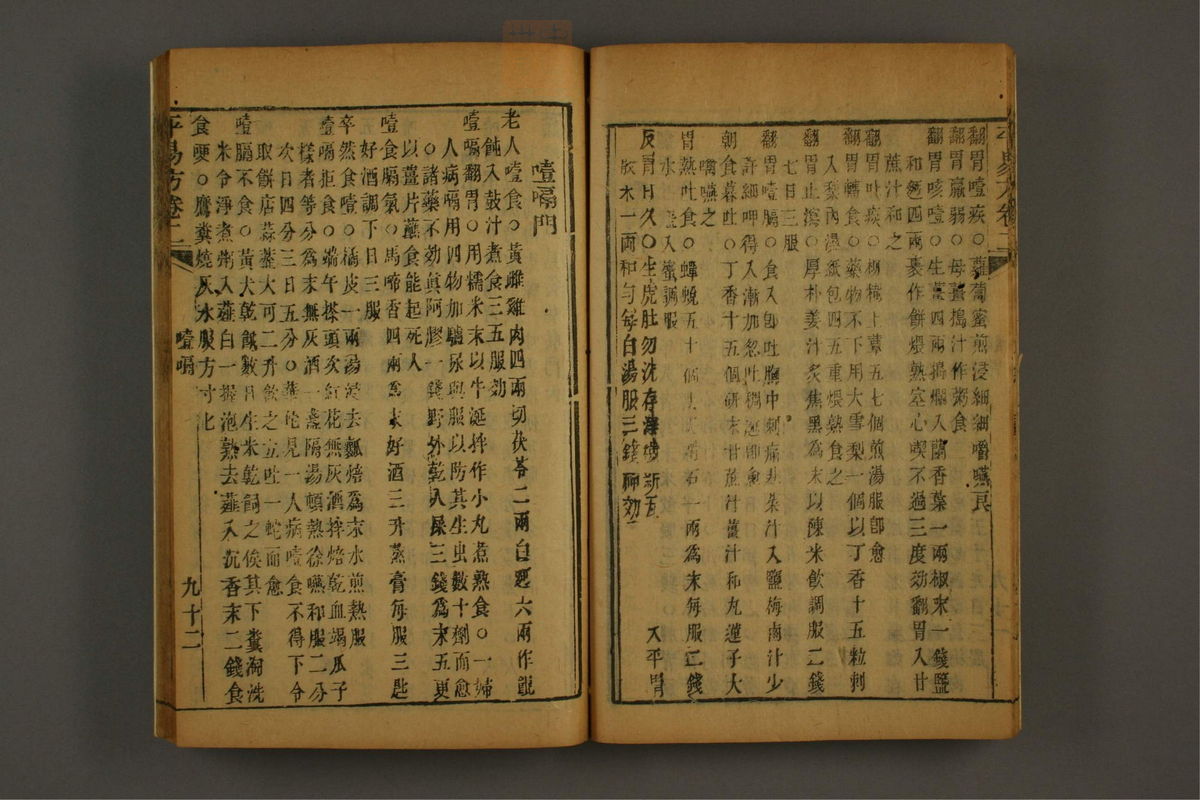 翻胃噎疾○蘿蔔蜜煎浸細細嚼嚥良
翻胃羸弱○母薑搗汁作粥食
翻胃咳噎○生薑四兩搗爛入蘭香葉一兩椒末一錢鹽
和麪四兩裹作餅煨熟空心喫不過三度効翻胃入甘
蔗汁和之
翻胃吐疾○柳樹上蕈五七個煎湯服卽愈
翻胃轉食○藥物不下用大雪梨一個以丁香十五粒刺
入梨內濕紙包四五重煨熟食之
翻胃止瀉○厚朴姜汁炙焦黑為末以陳米飲調服二錢
七日三服
翻胃噎膈○食入卽吐胸中刺痛 汁入鹽梅滷汁少
許細呷得入漸加忽吐
朝食暮吐○丁香十五個硏末甘蔗汁薑汁和丸蓮子大
噙嚥之
胃熱吐食○蟬蛻五十個 滑石一兩為末每服二錢
水 入蜜調服
反胃日久○生虎肚勿洗存滓 新瓦 入平胃
散末一兩和勻每白湯服三錢神効
噎嗝門
老人噎食○黃雌雞肉四兩切茯苓二兩白麪六兩作餛
飩入豉汁煮食三五服効
噎嗝翻胃○用糯米末以牛涎拌作小丸煮熟食○一婦
人病嗝用四物加驢尿與服以防其生虫數十劑而愈
○諸藥不効真阿膠一錢野外乾人屎三錢為末五更
以薑片蘸食能起死人
噎食膈氣○馬啼香四兩為末好酒三升蒸膏每服三匙
好酒調下日三服
卒然食噎○橘皮一兩湯浸去瓤焙為末水煎熱服
噎嗝拒食○端午採頭次紅花無灰酒拌焙乾血竭瓜子
樣者等分為末無灰酒一盞隔湯頓熱徐嚥初服二分
次日四分三日五分○華佗見一人病噎食不得下令
取餅店蒜虀大可二升飲之立吐一蛇而愈
噎膈不食○黃犬乾餓數日生米乾飼之俟其下糞淘洗
米令淨煮粥入薤白一握泡熟去薤入沉香末二錢食
食哽○鷹糞燒灰水服方寸匕
平易方卷二
噎嗝
九十二